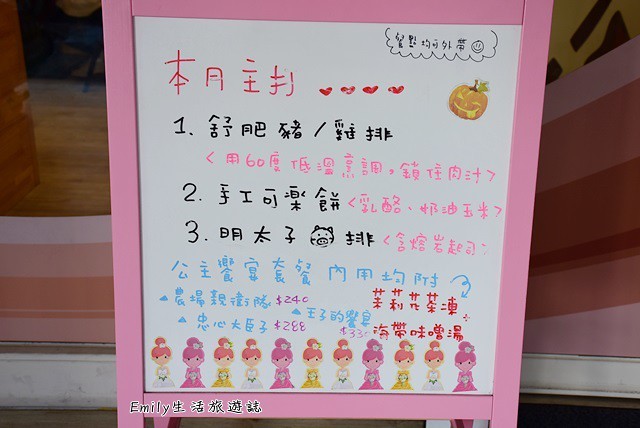 餐點均可外帶
本月主打
1. 舒肥豬/雞排
<用60度低溫烹調,鎖住肉汁>
2. 手工可樂餅<乳酪、奶油玉米>
3. 明太子 排<含熔岩起司>
公主饗宴套餐 內用均附
茉莉花茶凍
海帶味噌湯
▲農場親衛隊 $240
▲王子的饗宴 $335
▲忠心大臣子 $288
Emily生活旅遊誌